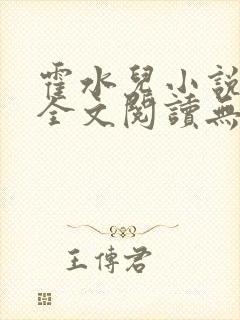 霍水兒小說
全文閱讀無
王傳君